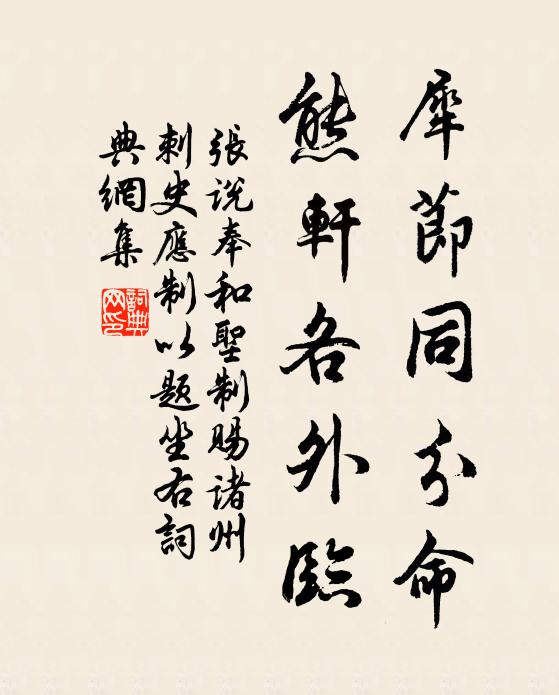 犀節同分命
熊軒各外臨
張說奉和聖制賜諸州
刺史應制以題坐右詞
典網集
詞典
网印